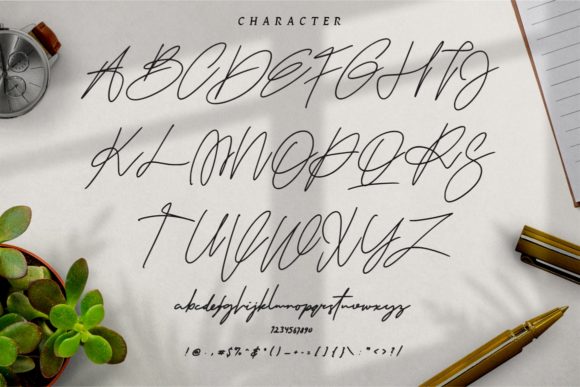 CHARACTER
ABCDEFGHIJ
KLMNOPQRS
TUVWXYZ
abcdefghijklmnopqrstuvwxyz
1234567890